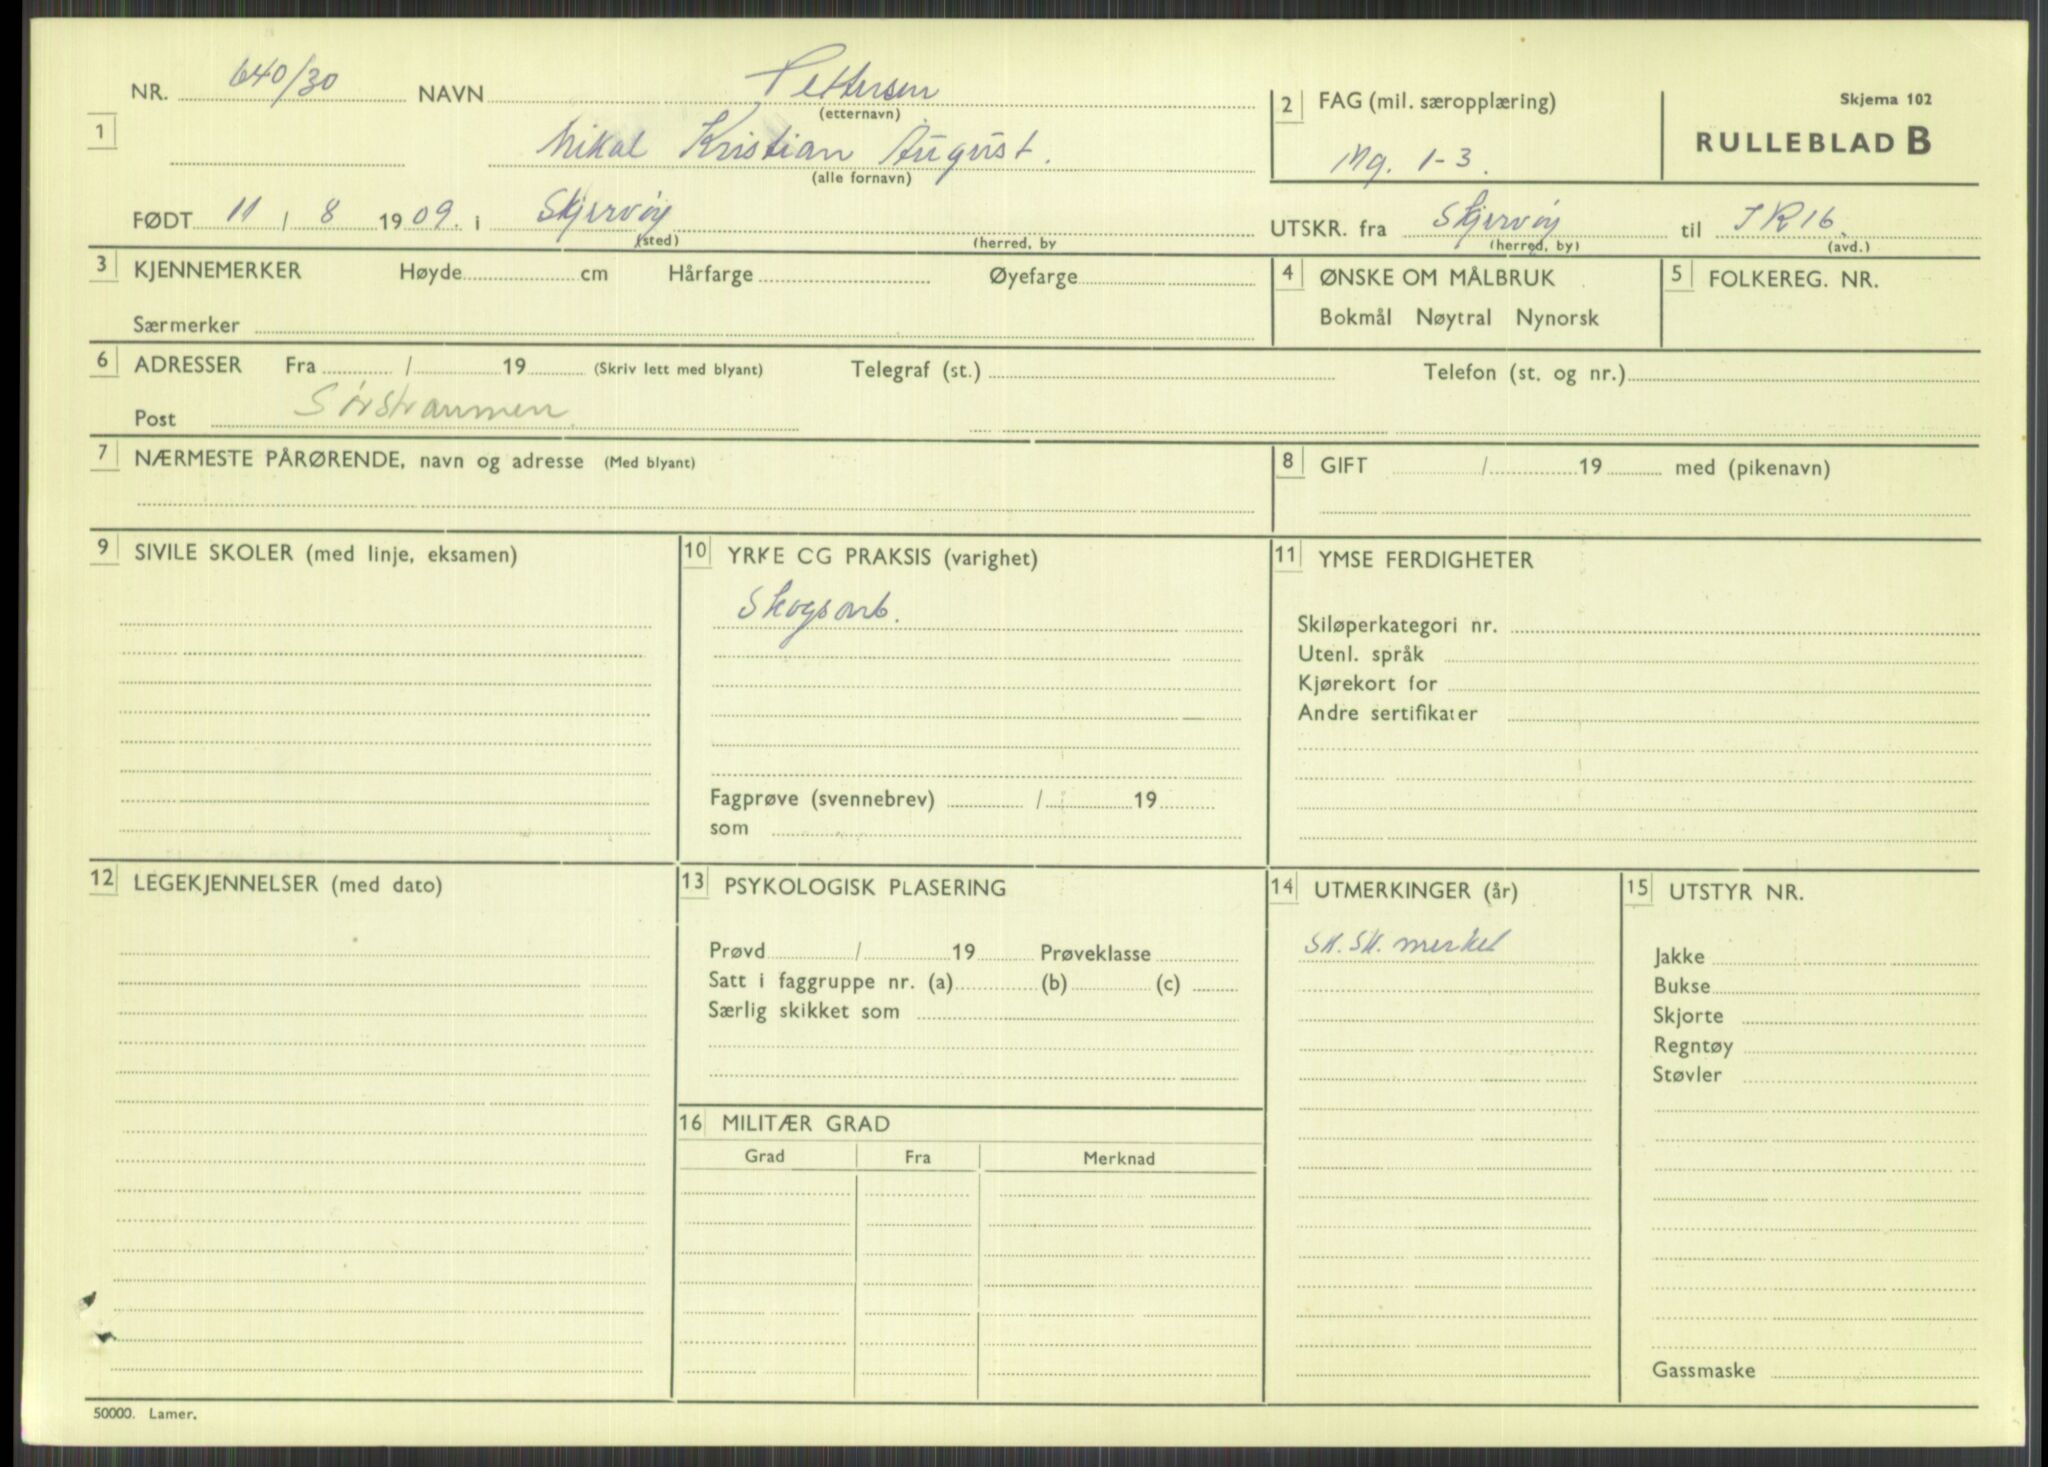 NR. 640/30 NAVN Pettersen
(etternavn)
1 Mikal Kristian August.
(alle fornavn)
2 FAG (mil. særopplæring)
Mg. 1-3.
Skjema 102
RULLEBLAD B
FØDT 11 / 8 1909. i Skjervøy
(sted) (herred, by
UTSKR. fra Skjervøy til IR16.
(herred, by) (avd.)
3 KJENNEMERKER Høyde cm Hårfarge Øyefarge
Særmerker
4 ØNSKE OM MÅLBRUK
Bokmål Nøytral Nynorsk
5 FOLKEREG. NR.
6 ADRESSER Fra / 19 (Skriv lett med blyant) Telegraf (st.) Telefon (st. og nr.)
Post Sørstraumen
7 NÆRMESTE PÅRØRENDE, navn og adresse (Med blyant)
8 GIFT / 19 med (pikenavn)
9 SIVILE SKOLER (med linje, eksamen)
10 YRKE CG PRAKSIS (varighet)
Skogsarb.
Fagprøve (svennebrev) / 19
som
11 YMSE FERDIGHETER
Skiløperkategori nr.
Utenl. språk
Kjørekort for
Andre sertifikater
12 LEGEKJENNELSER (med dato)
13 PSYKOLOGISK PLASERING
Prøvd / 19 Prøveklasse
Satt i faggruppe nr. (a) (b) (c)
Særlig skikket som
14 UTMERKINGER (år)
SK. SK. merket
15 UTSTYR NR.
Jakke
Bukse
Skjorte
Regntøy
Støvler
Gassmaske
16 MILITÆR GRAD
Grad Fra Merknad
50000. Lamer.